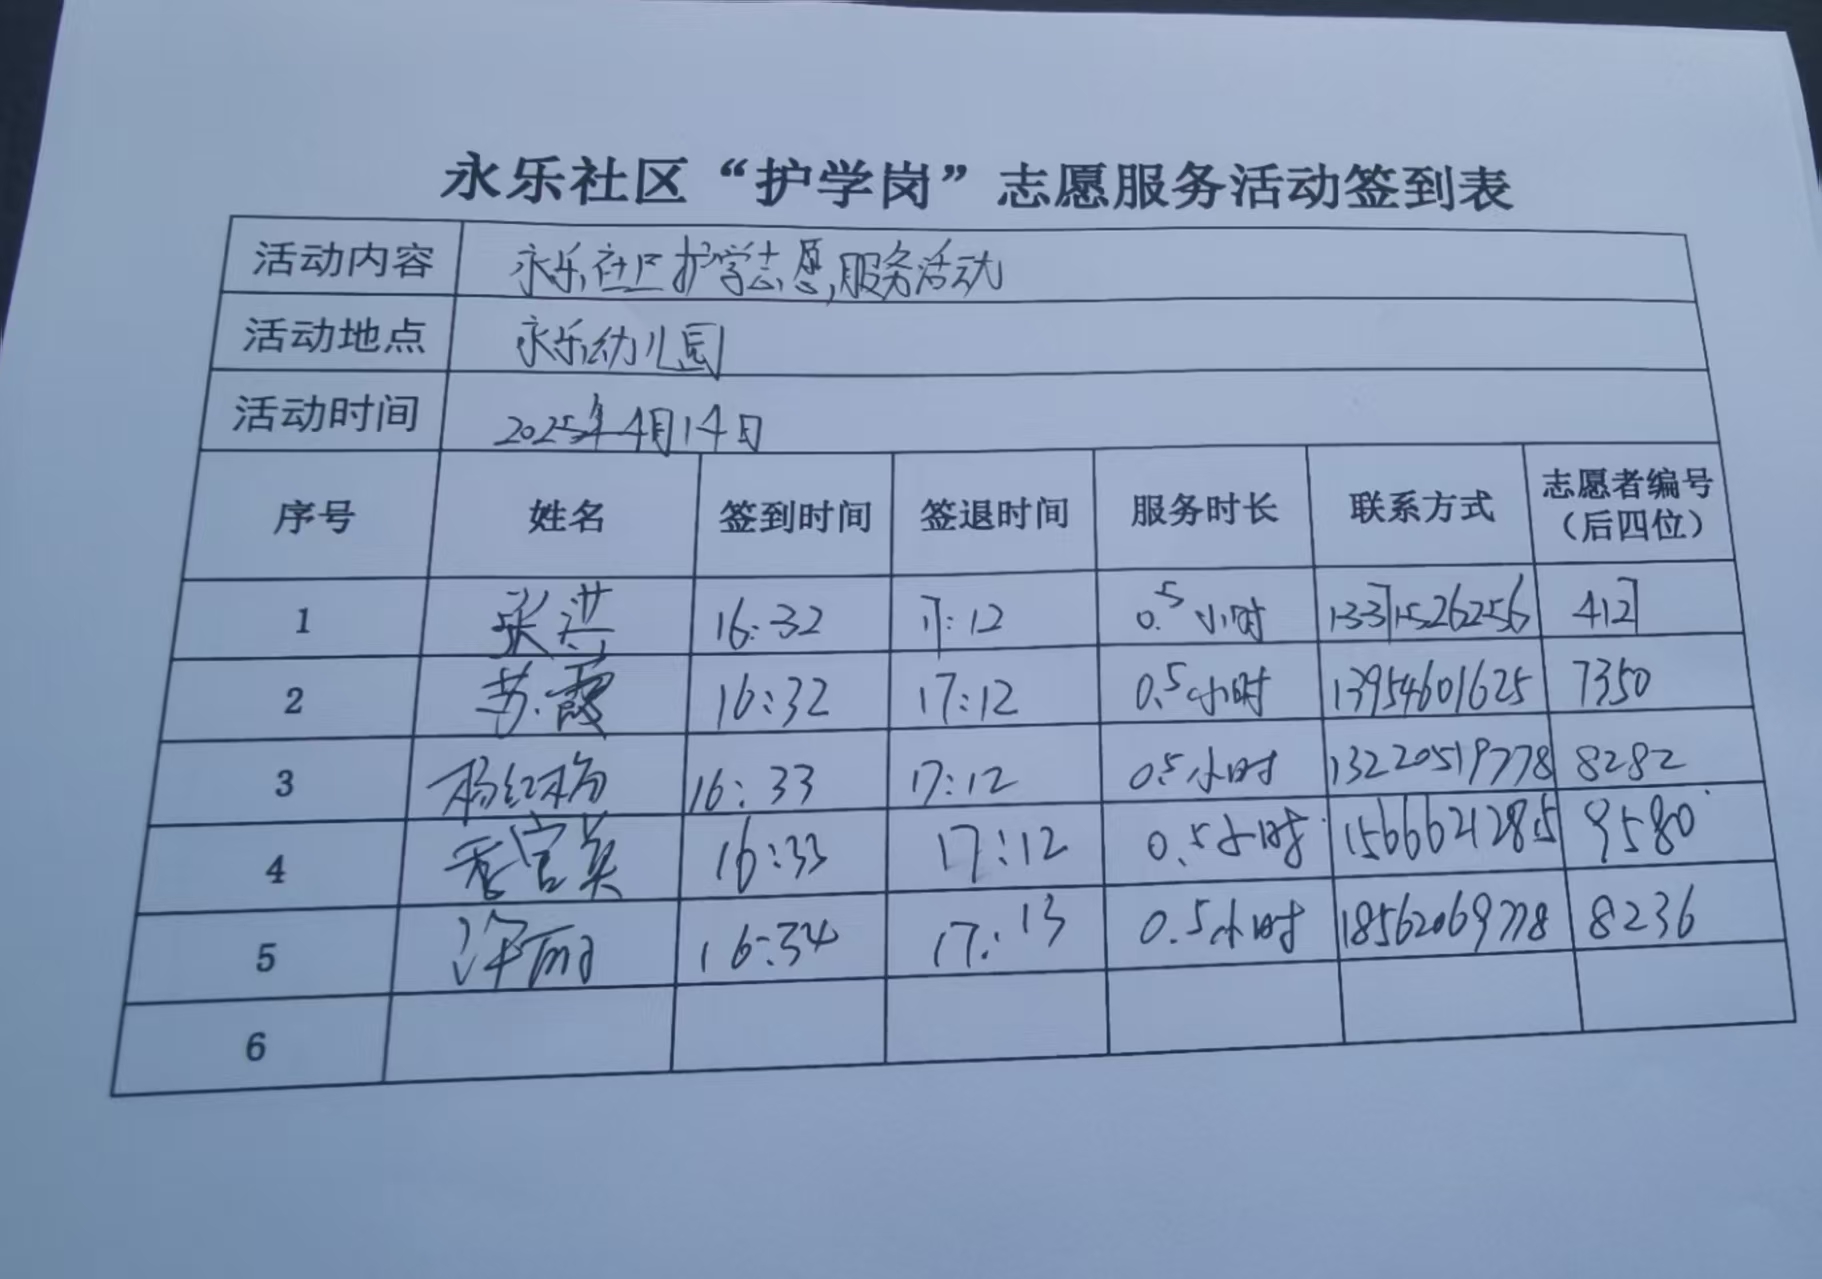 永乐社区“护学岗”志愿服务活动签到表
活动内容 永乐社区护学志愿服务活动
活动地点 永乐幼儿园
活动时间 2025年4月14日
序号 姓名 签到时间 签退时间 服务时长 联系方式 志愿者编号（后四位）
1 张洪 16:32 17:12 0.5小时 13371526256 4127
2 苏霞 16:32 17:12 0.5小时 13954601625 7350
3 杨红梅 16:33 17:12 0.5小时 13220519778 8282
4 16:33 17:12 0.5小时 15666212815 9580
5 许丽 16:34 17:13 0.5小时 18562069778 8236
6